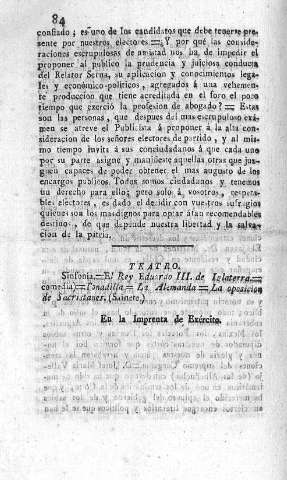 84
confiado; es uno de los candidatos que debe tenerse pre-
sente por nuestros electores = ¿Y por qué las conside-
raciones escrupulosas de amistad nos ha de impedir el
proponer al público la prudencia y juiciosa conducta
del Relator Serna, su aplicacion y conocimientos lega-
les y económico-políticos, agregados á una vehemen-
te produccion que tiene acreditada en el foro el poco
tiempo que exerció la profesion de abogado? = Estas
son las personas, que despues del mas escrupuloso exá-
men se atreve el Publicista á proponer á la alta con-
sideracion de los señores electores de partido, y al mis-
mo tiempo invita á sus conciudadanos á que cada uno
por su parte asigne y manifieste aquellas otras que juz-
guen capaces de poder obtener el mas augusto de los
encargos públicos. Todos somos ciudadanos y tenemos
un derecho para ello; pero solo á vosotros, respeta-
bles electores, es dado el decidir con vuestros sufragios
quienes son los mas dignos para optar á tan recomendables
destinos, de que depende nuestra libertad y la salva-
cion de la patria.
TEATRO.
Sinfonía. = El Rey Eduardo III. de Inglaterra =
comedia) = Tonadilla = La Alemanda = La oposicion
de Sacristanes. (Sainete)
En la Imprenta de Exército.